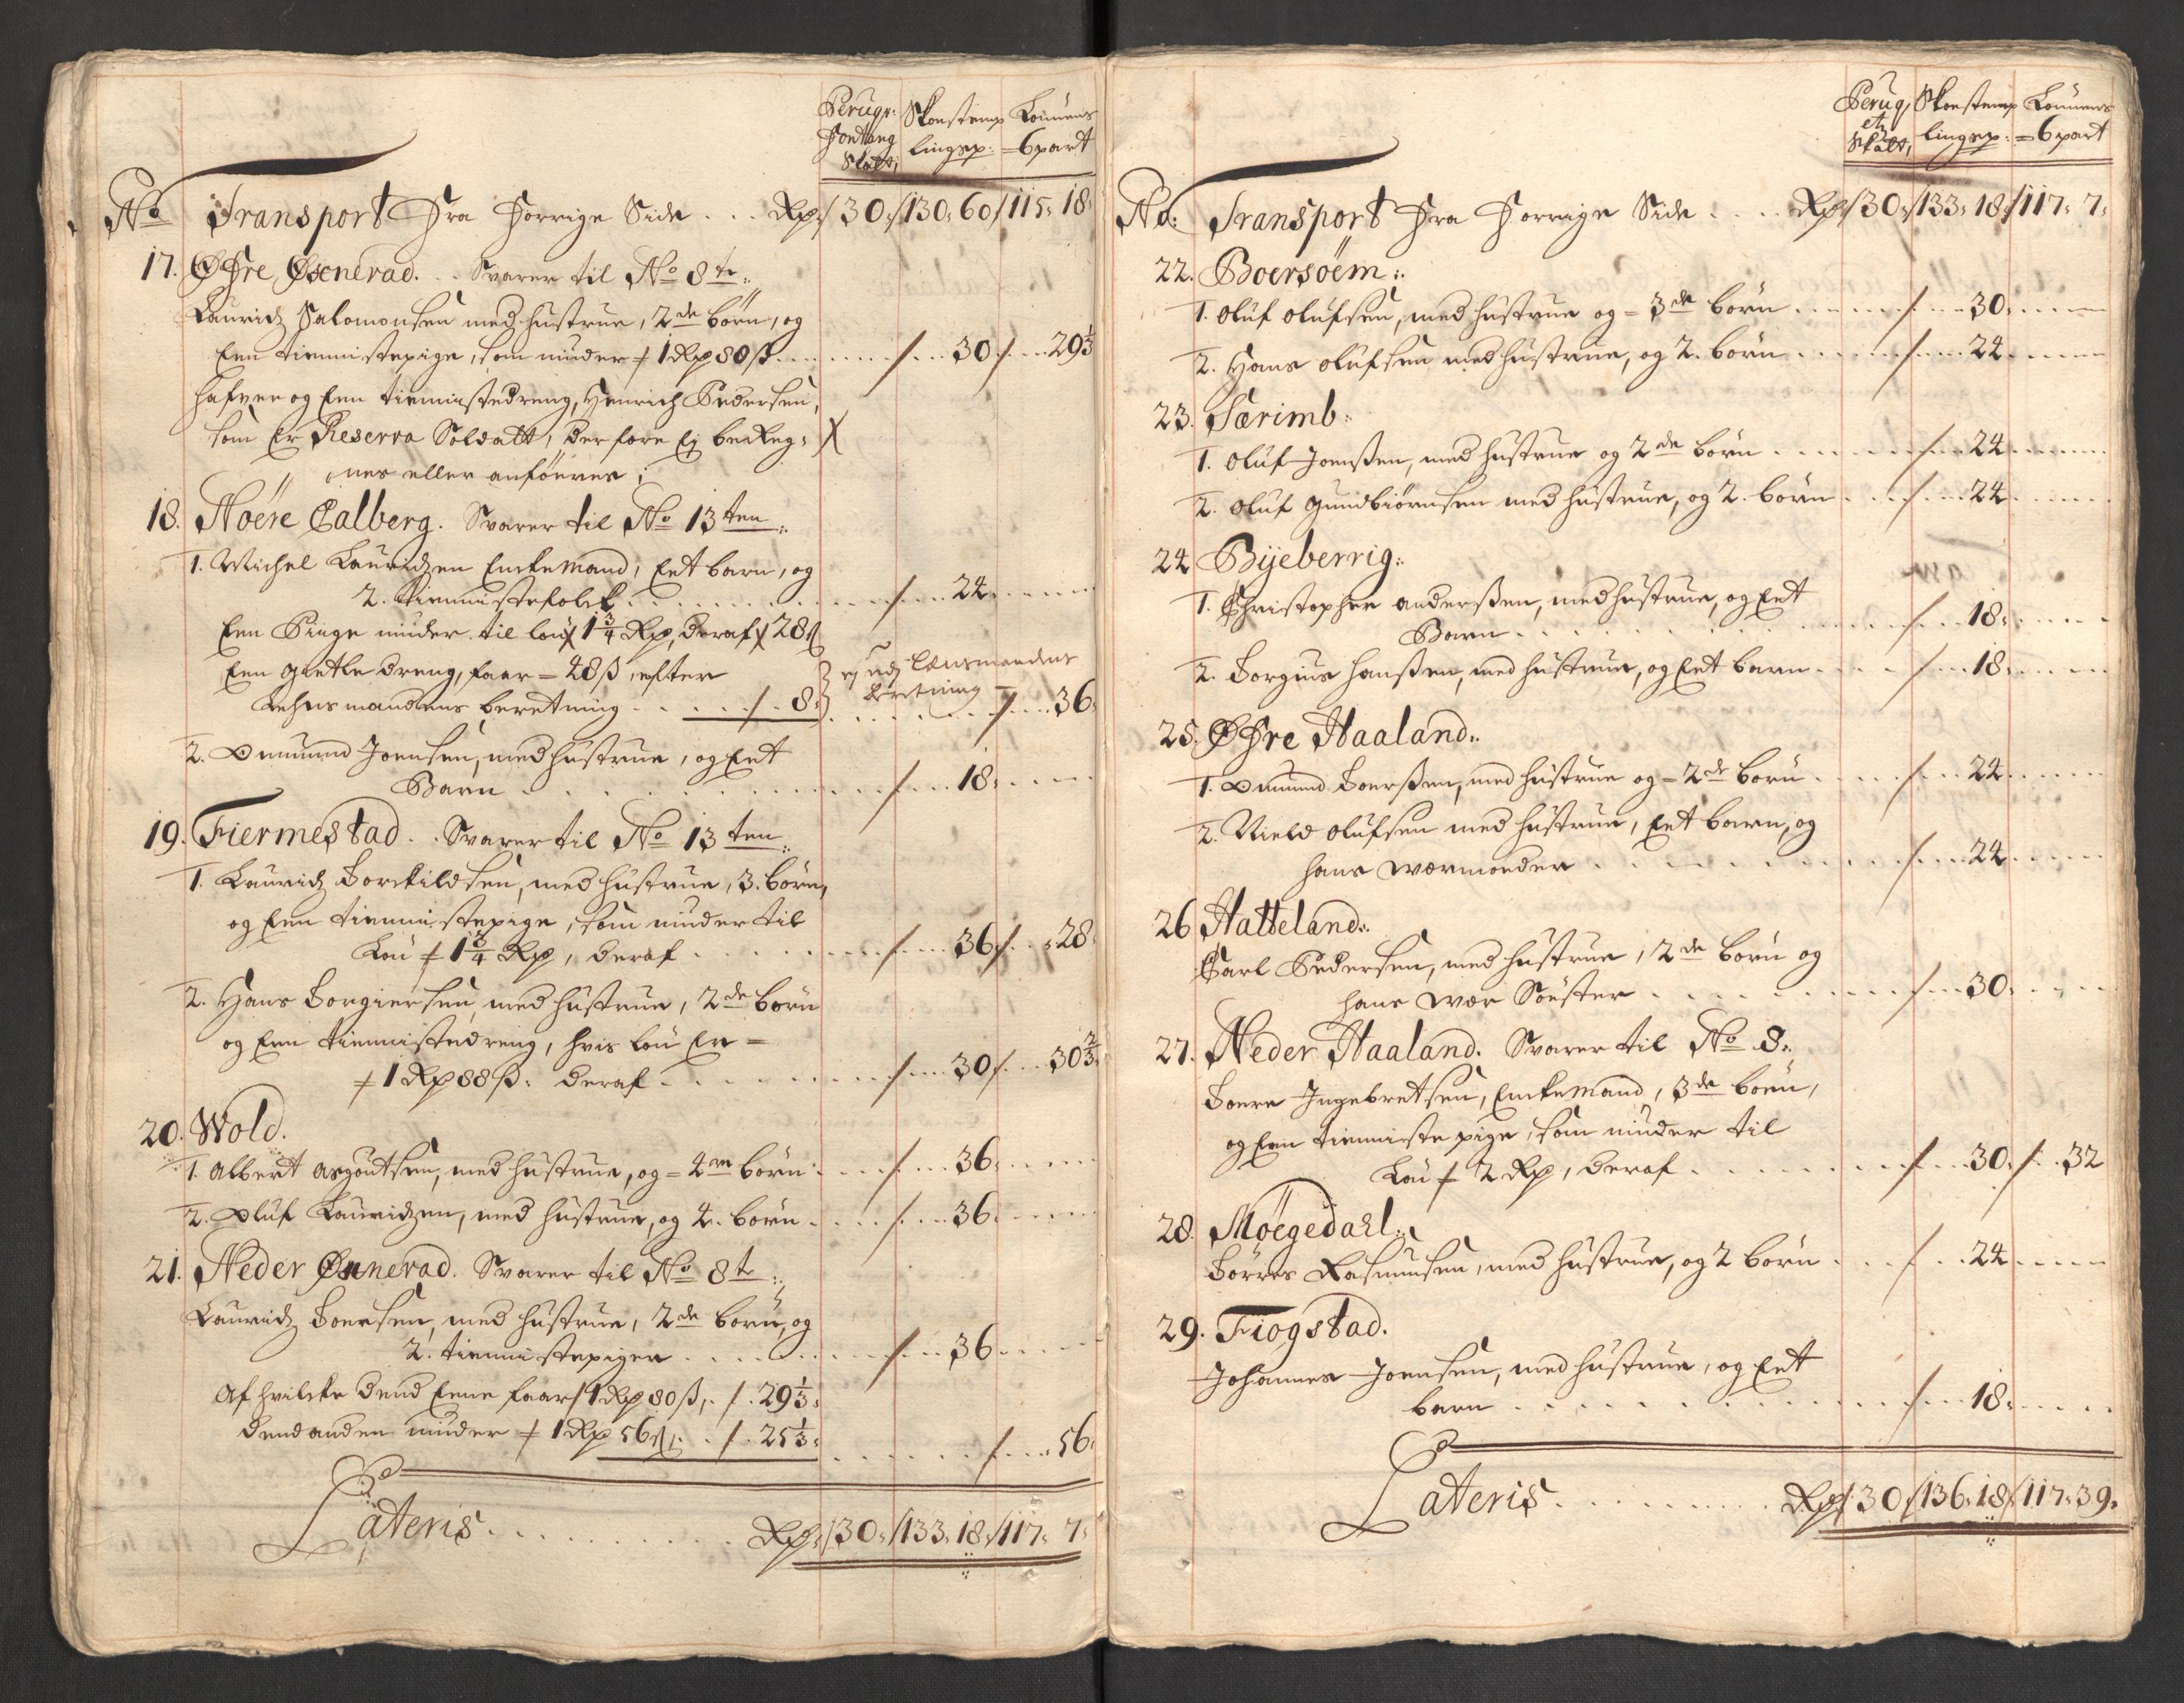 Perugr: Skoestemp Lønnens
Fontang lingsp: = 6 part
Skatt,
No Transport Fra Forrige Side . . . Rdr 30:/130: 60/115: 18:
17. Øfre Øsenerad. . Svarer til No 8te:
Lauridz Salomonsen med hustrue, 2de børn, og
Een tienniste pige, som nyder / 1 Rdr 80 ß . . . / . . 30 / . . 29⅓
hafver og Een tiennistedreng, Henrich Pedersen,
som Er Reserva Soldatt, derfore Ej bereg: X
nes eller anføeres;
18. Nøere Calberg. Svarer til No 13ten:
1. Michel Lauridzen Enckemand, Eet barn, og
2. tiennistefolck . . . / . . 24 . . .
Een Pige nyder til løn / 1¾ Rdr, deraf / 28 ß
Een giettedreng, faar = 48 ß, efter
Lehnsmandens beretning . . . / . 8: ej udj Lensmandens
beretning = / . . 36:
2. Omund Joensen, med hustrue, og Eet
Barn . . . / . . 18: . . .
19. Fiermestad. . Svarer til No 13ten:
1. Lauridz Torckildsen, med hustrue, 3. børn,
og Een tiennistepige, som nyder til
Løn / 1¾ Rdr, deraf . . . / . . 36 / . . 28:
2. Hans Torgiersen, med hustrue, 2de børn
og Een tiennistedreng, hvis løn Er =
/ 1 Rdr 88 ß: deraf . . . / . . 30 / . . 30⅔
20. Wold.
1. Albert Asgoutsen, med hustrue, og = 4re børn . . . / . . 36: . . .
2. Oluf Lauridzen, med hustrue, og 4. børn . . . / . . 36 . . .
21. Neder Øsenerad. Svarer til No 8te:
Lauridz Toersen, med hustrue, 2de børn, og
2. tiennistepiger . . . / . . 36 . . .
Af hvilcke dend Eene faar / 1 Rdr 80 ß, / . 29⅓:
dend anden nyder / 1 Rdr 56 ß, . / . 25⅓: . . . / . . 56:
Lateris . . . Rdr /30:/133: 18:/117: 7:
Perug, Skoestemp Lønnens
etc lingsp: = 6 part
Skatt,
No: Transport Fra Forrige Side . . . Rdr /30:/133: 18:/117: 7:
22. Boersøem:
1. Oluf Olufsen, med hustrue og = 3de børn . . . / . . 30: . . .
2. Hans Olufsen med hustrue, og 2. børn . . . / . . 24 . . .
23. Særimb:
1. Oluf Joenßen, med hustrue og 2de børn . . . / . . 24 . . .
2. Oluf Gundbiørnsen med hustrue, og 2. børn . . . / . . 24 . . .
24 Bijeberrig:
1. Christopher Anderßen, med hustrue, og Eet
Barn . . . / . . 18: . . .
2. Torgius Hanßen, med hustrue, og Eet barn . . . / . . 18: . . .
25. Øfre Haaland:
1. Omund Toerßen, med hustrue og = 2de børn . . . / . . 24 . . .
2. Nield Olufsen med hustrue, Eet barn, og
hans wærmoeder . . . / . . 24 . . .
26 Hatteland:
Carl Pedersen, med hustrue, 2de børn og
hans wær Søuster . . . / . . 30: . . .
27. Neder Haaland. Svarer til No 8:
Toere Ingebretsen, Enckemand, 3de børn,
og Een tienniste pige, som nyder til
Løn / 2 Rdr, deraf . . . / . . 30: / . . 32
28. Møegedahl:
Tørres Rasmusen, med hustrue, og 2 børn . . . / . . 24 . . .
29. Fiogstad.
Johannes Joensen, med hustrue, og Eet
barn . . . / . . 18: . . .
Lateris . . . Rdr /30/136: 18/117: 39: